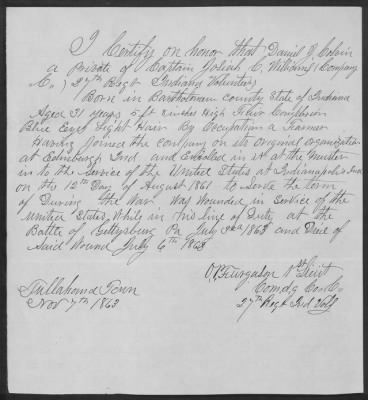 I Certify on honor that Daniel B Colvin
a Private of Captain Josiah C. Williams' Company
C., 27th Regt Indiana Volunteers
Born in Bartholomew County State of Indiana
Aged 31 years 5 ft 8 inches High Fair Complexion
Blue Eyes Light Hair By Occupation a Farmer
Having joined the company on its original organization
at Edinburgh Ind and Enrolled in it at the Muster
in to the service of the United States at Indianapolis Ind
on the 12th Day of August 1861 to serve the term
of During the War Was Wounded in Service of the
United States, While in his line of Duty at the
Battle of Gettysburg Pa July 3rd 1863 and Died of
Said Wound July 6th 1863
Tullahoma Tenn
Nov 7th 1863
Furguson 1st Lieut
Comdg Co C.
27th Regt Ind Vols